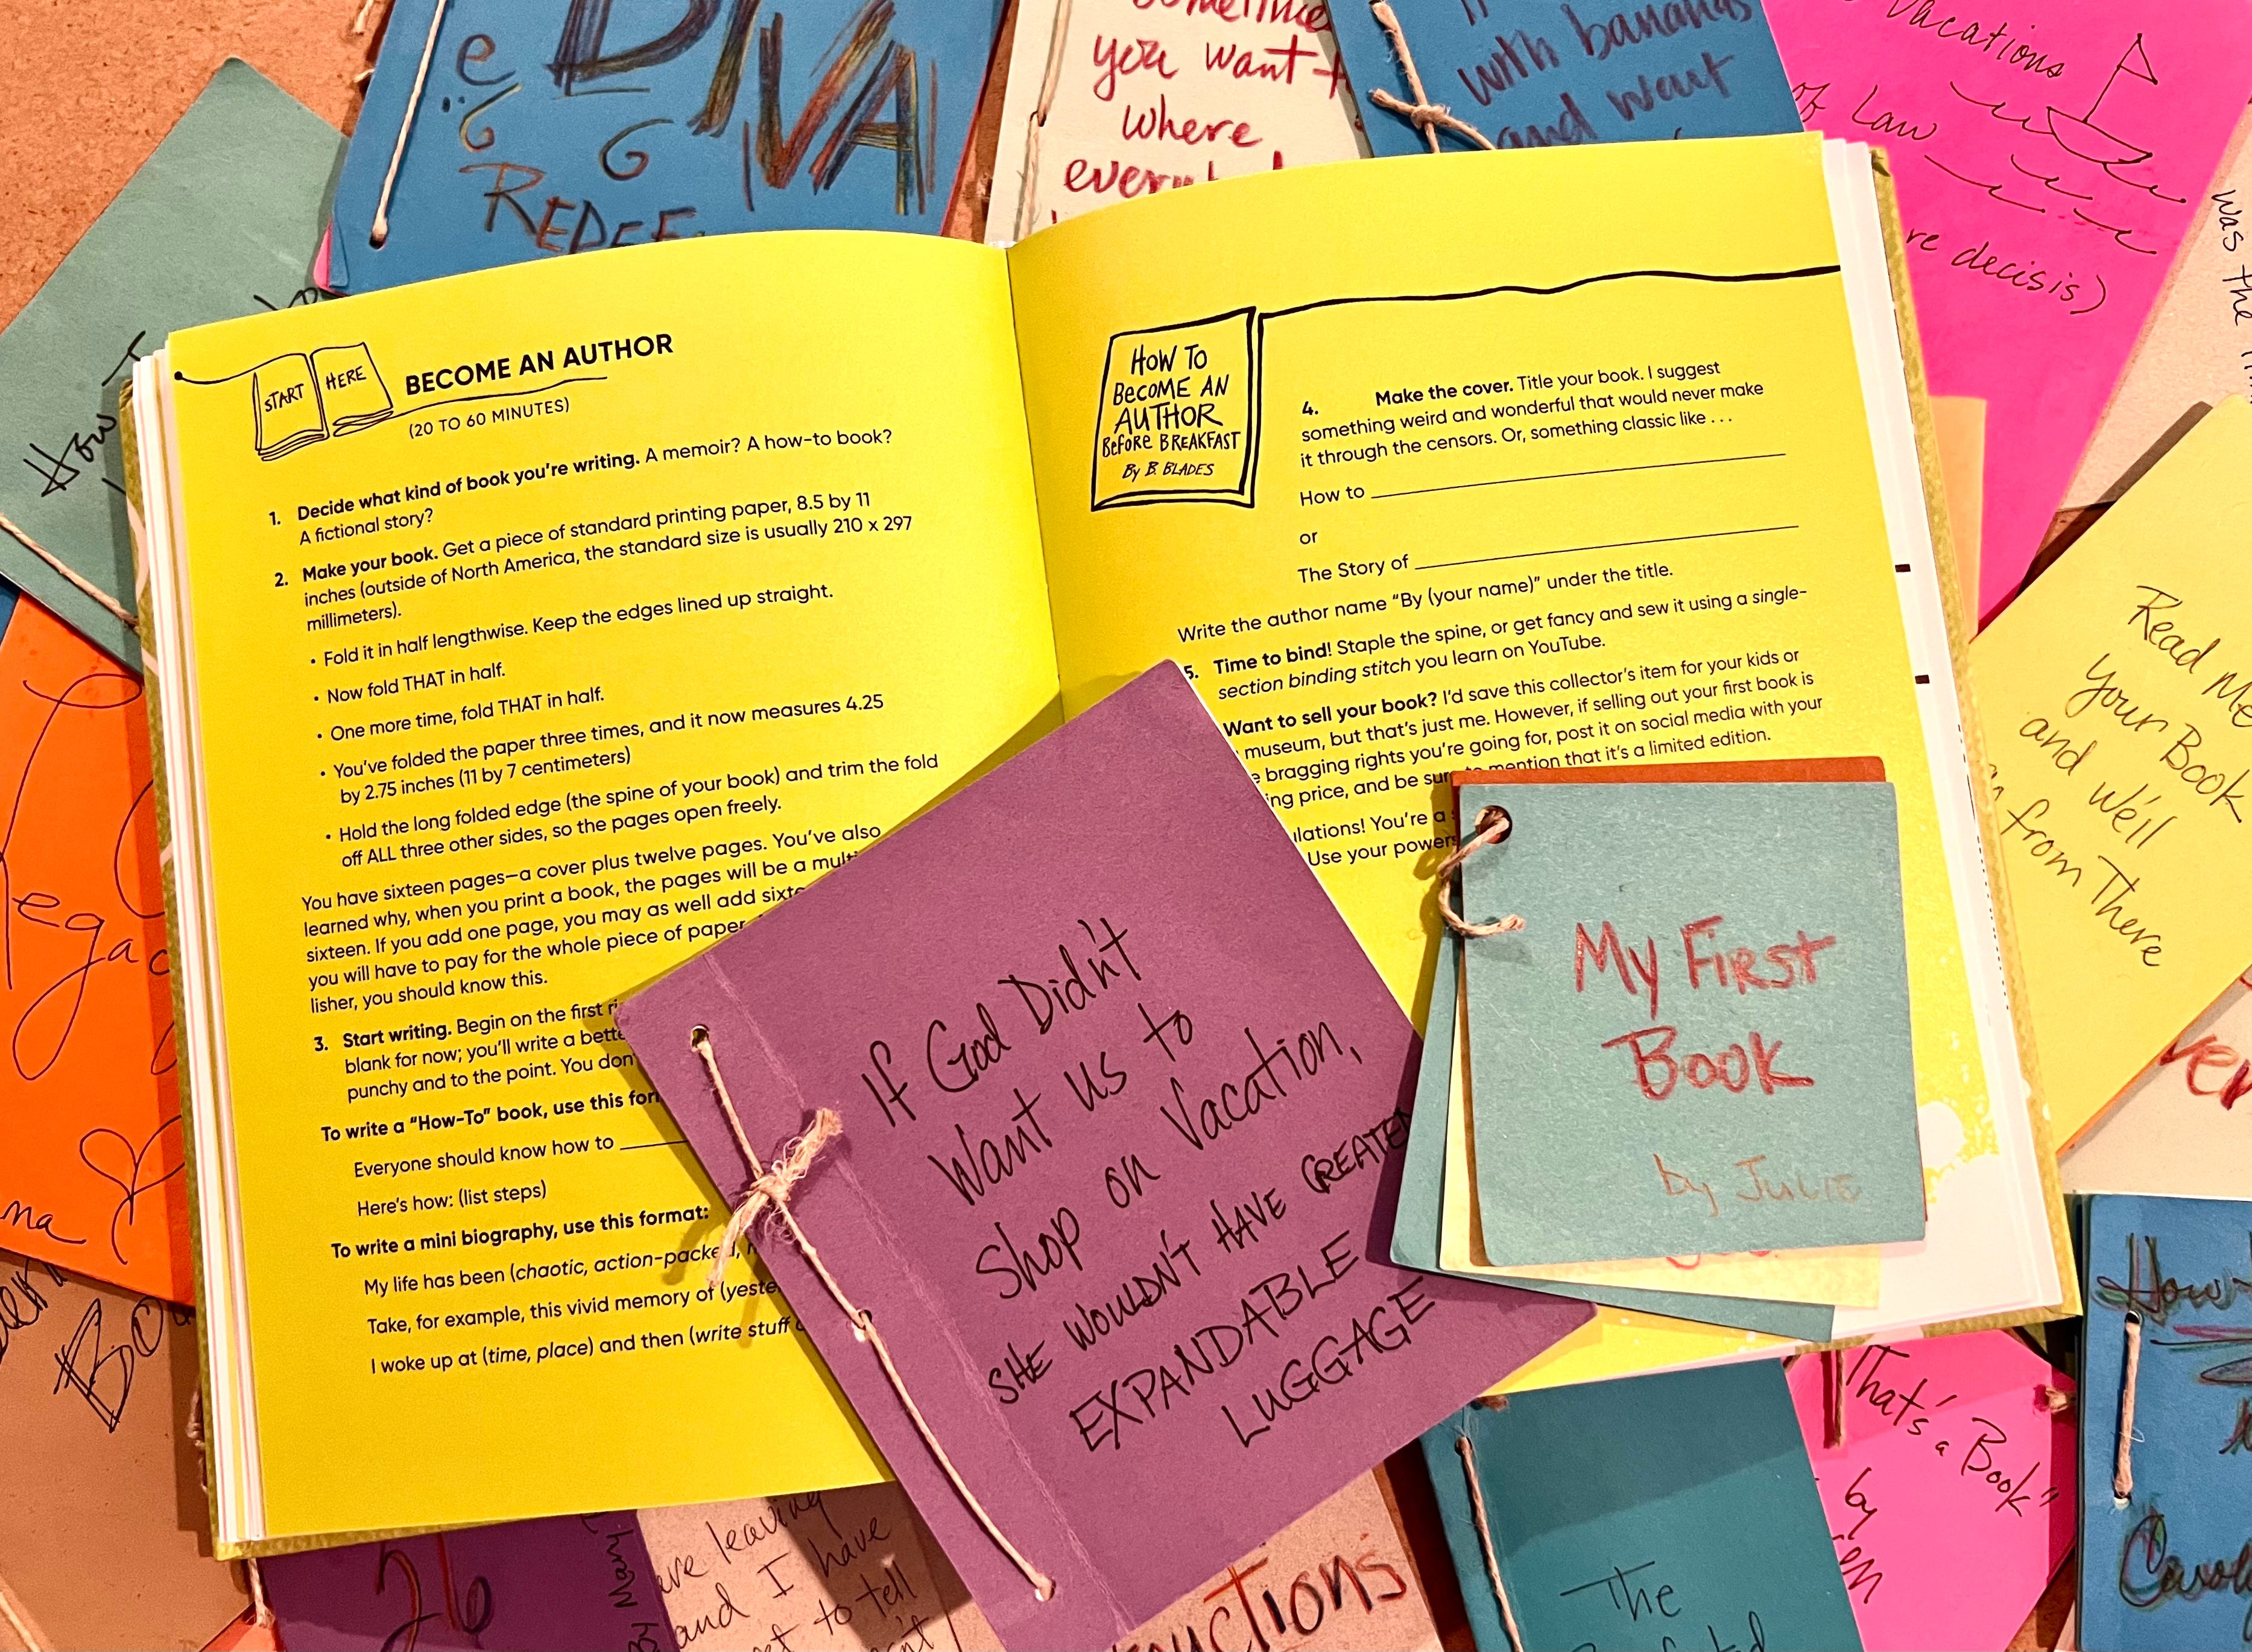 DIVA
REDEE
Sometime
you want t
where
with bananas
and want
Vacations
of Law
re decisis)
was the
How T
START
HERE
BECOME AN AUTHOR
(20 TO 60 MINUTES)
1. Decide what kind of book you're writing. A memoir? A how-to book?
A fictional story?
2. Make your book. Get a piece of standard printing paper, 8.5 by 11
inches (outside of North America, the standard size is usually 210 x 297
millimeters).
• Fold it in half lengthwise. Keep the edges lined up straight.
• Now fold THAT in half.
• One more time, fold THAT in half.
• You've folded the paper three times, and it now measures 4.25
by 2.75 inches (11 by 7 centimeters)
• Hold the long folded edge (the spine of your book) and trim the fold
off ALL three other sides, so the pages open freely.
You have sixteen pages—a cover plus twelve pages. You've also
learned why, when you print a book, the pages will be a multi
sixteen. If you add one page, you may as well add sixte
you will have to pay for the whole piece of paper
lisher, you should know this.
3. Start writing. Begin on the first ri
blank for now; you'll write a bette
punchy and to the point. You don'
To write a "How-To" book, use this for
Everyone should know how to
Here's how: (list steps)
To write a mini biography, use this format:
My life has been (chaotic, action-packed,
Take, for example, this vivid memory of (yeste
I woke up at (time, place) and then (write stuff
HOW TO
BECOME AN
AUTHOR
BEFORE BREAKFAST
By B. BLADES
4. Make the cover. Title your book. I suggest
something weird and wonderful that would never make
it through the censors. Or, something classic like . . .
How to
or
The Story of
Write the author name "By (your name)" under the title.
5. Time to bind! Staple the spine, or get fancy and sew it using a single-
section binding stitch you learn on YouTube.
Want to sell your book? I'd save this collector's item for your kids or
museum, but that's just me. However, if selling out your first book is
e bragging rights you're going for, post it on social media with your
ing price, and be sure to mention that it's a limited edition.
lations! You're a
Use your powers
If God Didn't
Want us to
Shop on Vacation,
SHE WOULDN'T HAVE CREATED
EXPANDABLE
LUGGAGE
My First
Book
by Julie
Read Me
your Book
and we'll
from There
egac
na
Bo
26
by Mary
ere leaving
and I have
et to tell
uctions
The
That's a Book"
by
en
How-
Carol